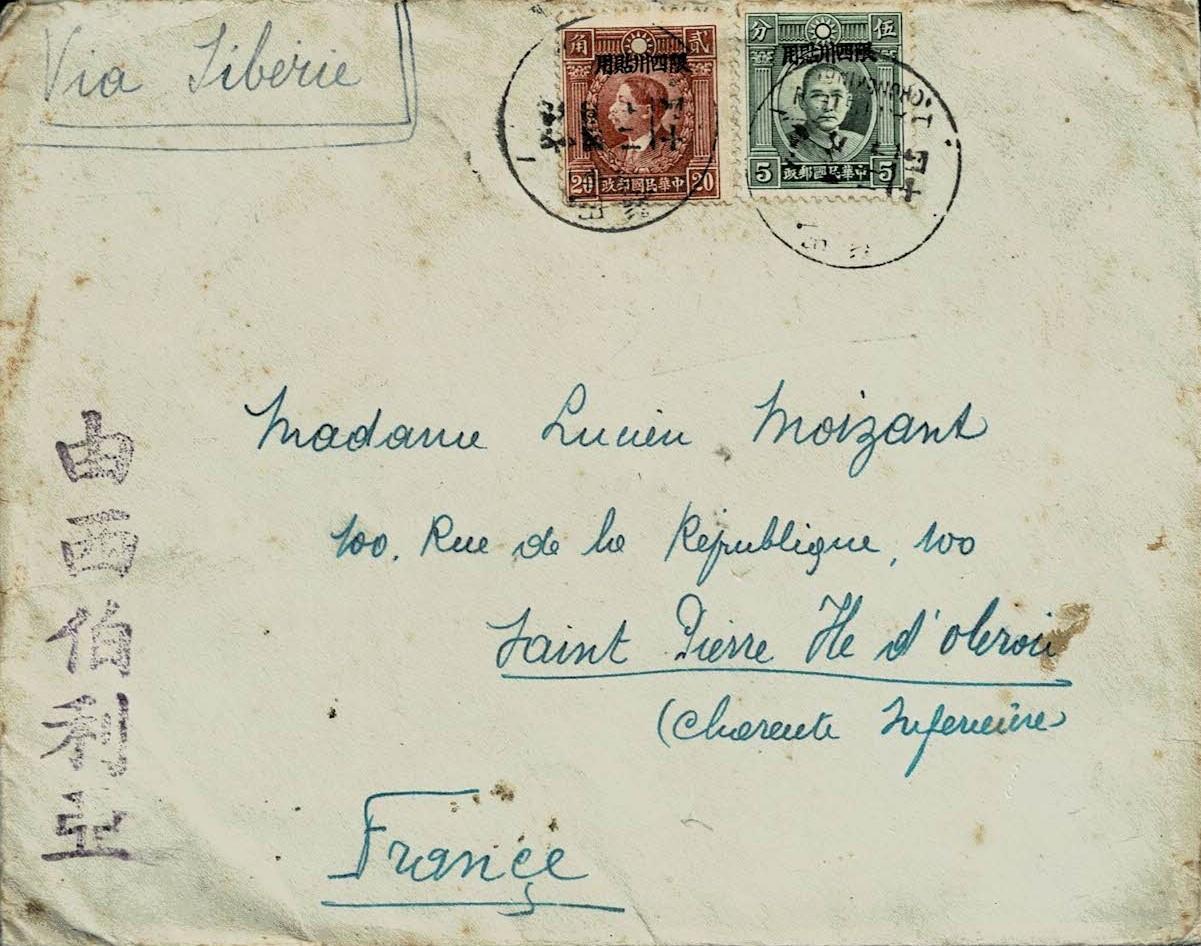 Via Siberie
貳角
限四川貼用
20 中華民國郵政 20
伍分
限四川貼用
5 中華民國郵政 5
Madame Lucien Moizant
100. Rue de la République, 100
Saint Pierre Ile d'oleron
(Charente Inferieure
France
由西伯利亞